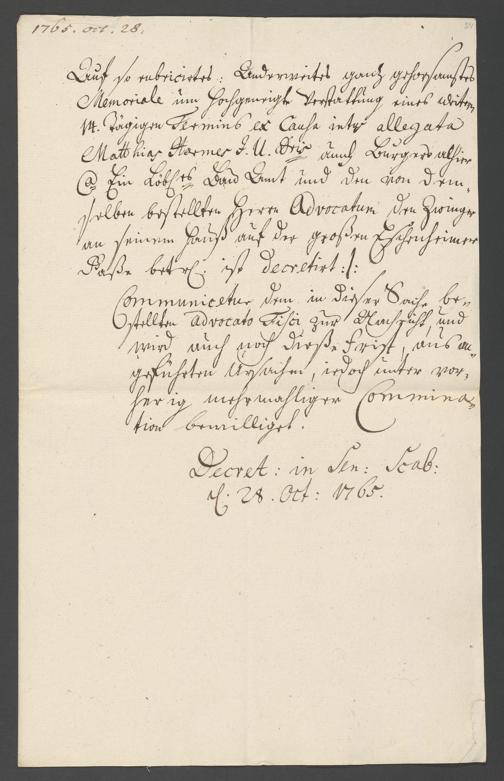 1765. Oct. 28.
Auf so rubricirtes: Anderweites gantz gehorsamstes
Memoriale um Hochgeneigte Verstattung eines weitern
14. Tägigen Termins ex causa intus allegata
Matthiae Hoemer J. U. Dris auch Burgers alhier
Ca Ein Löbles Bau Amt und den von dem-
selben bestellten Herrn Advocatum den Zwinger
an seinem Hauß auf der großen Eschenheimer
Gaße betrl. ist decretirt :/:
Communicetur dem in dieser Sache be-
stellten Advocato Fisci zur Nachricht, und
wird auch noch dieße Frist, aus an-
geführten Ursachen, jedoch unter vor-
herig mehrmahliger Commina-
tion bewilliget.
Decret: in Sen: Scab:
d. 28. Oct: 1765.